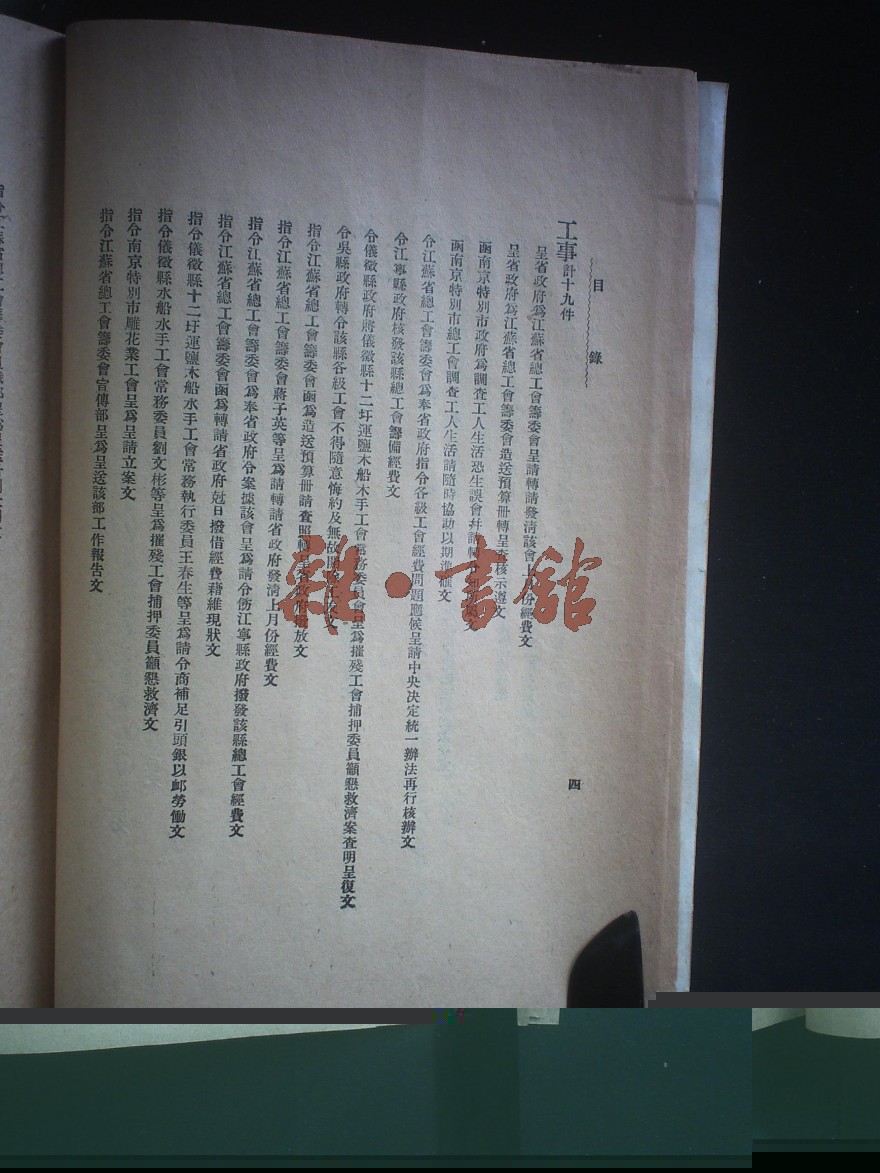 目錄
四
工事計十九件
呈省政府爲江蘇省總工會籌委會呈請轉請發清該會上月份經費文
呈省政府爲江蘇省總工會籌委會造送預算册轉呈查核示遵文
函南京特別市政府爲調查工人生活恐生誤會幷請轉
函南京特別市總工會調查工人生活請隨時協助以期準確文
令江蘇省總工會籌委會爲奉省政府指令各級工會經費問題應候呈請中央决定統一辦法再行核辦文
令江寧縣政府核發該縣總工會籌備經費文
令儀徵縣政府將儀徵縣十二圩運鹽木船木手工會常務委員會呈爲摧殘工會捕押委員籲懇救濟案查明呈復文
令吳縣政府轉令該縣各級工會不得隨意悔約及無故開除工友文
指令江蘇省總工會籌委會函爲造送預算册請查照轉呈省政府撥放文
指令江蘇省總工會籌委會蔣子英等呈爲請轉請省政府發清上月份經費文
指令江蘇省總工會籌委會爲奉省政府令案據該會呈爲請令飭江寧縣政府撥發該縣總工會經費文
指令江蘇省總工會籌委會函爲轉請省政府尅日撥借經費藉維現狀文
指令儀徵縣十二圩運鹽木船水手工會常務執行委員王春生等呈爲請令商補足引頭銀以卹勞働文
指令儀徵縣水船水手工會常務委員劉文彬等呈爲摧殘工會捕押委員籲懇救濟文
指令南京特別市雕花業工會呈爲呈請立案文
指令江蘇省總工會籌委會宣傳部呈爲呈送該部工作報告文
雜·書館